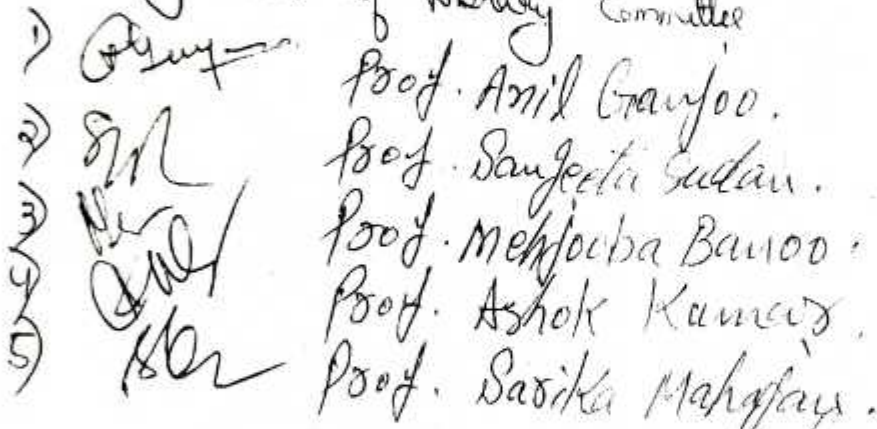 of Library Committee
1) Prof. Anil Ganjoo.
2) Prof. Sangeeta Sudan.
3) Prof. Mehjooba Banoo.
4) Prof. Ashok Kumar.
5) Prof. Sarika Mahajan.